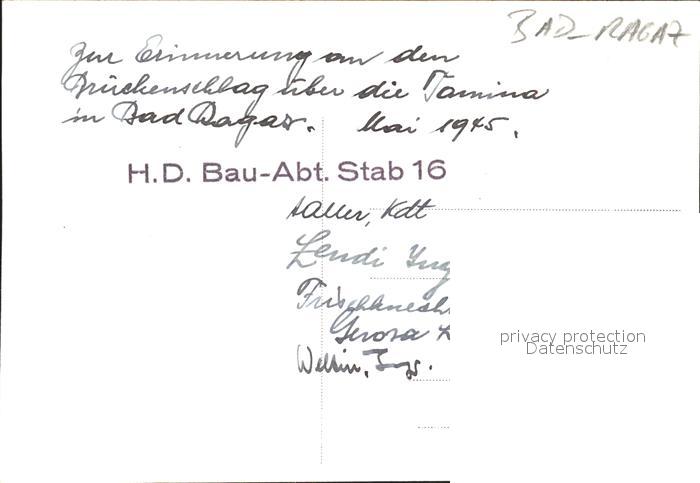 BAD-RAGAZ
Zur Erinnerung an den
Brückenschlag über die Tamina
in Bad Ragaz. Mai 1945.
H.D. Bau-Abt. Stab 16
Kdt
Lendi Ing
Frischknech
Gerosa
privacy protection
Datenschutz
Ing.